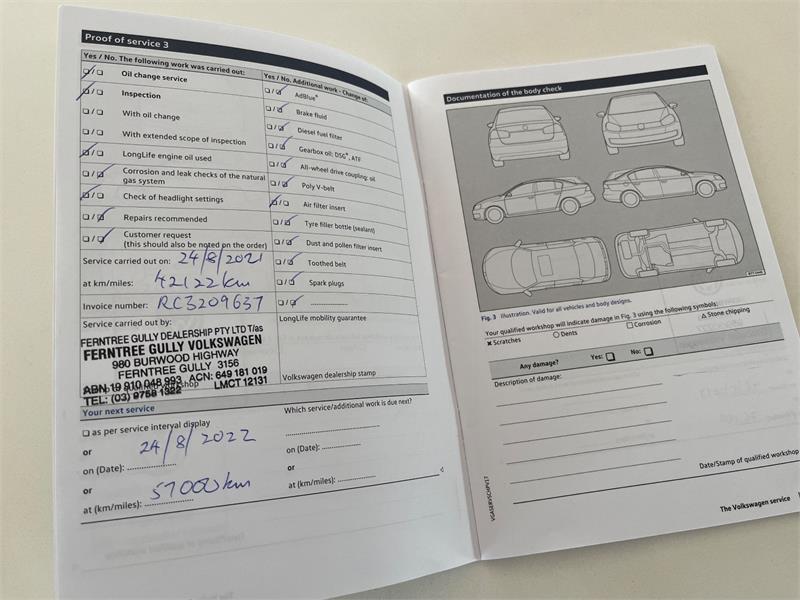 Proof of service 3
Yes / No. The following work was carried out:
Oil change service
Inspection
With oil change
With extended scope of inspection
LongLife engine oil used
Corrosion and leak checks of the natural
gas system
Check of headlight settings
Repairs recommended
Customer request
(this should also be noted on the order)
Service carried out on: 24/8/2021
at km/miles: 42122km
Invoice number: RC3209637
Service carried out by:
FERNTREE GULLY DEALERSHIP PTY LTD T/as
FERNTREE GULLY VOLKSWAGEN
980 BURWOOD HIGHWAY
FERNTREE GULLY 3156
ABN 19 910 048 993 ACN: 649 181 019
TEL: (03) 9758 1322 LMCT 12131
Yes / No. Additional work - Change of:
AdBlue®
Brake fluid
Diesel fuel filter
Gearbox oil: DSG®, ATF
All-wheel drive coupling: oil
Poly V-belt
Air filter insert
Tyre filler bottle (sealant)
Dust and pollen filter insert
Toothed belt
Spark plugs
LongLife mobility guarantee
Volkswagen dealership stamp
Your next service
as per service interval display
or
24/8/2022
on (Date):
or
57000km
at (km/miles):
Which service/additional work is due next?
or
on (Date):
or
at (km/miles):
Documentation of the body check
Fig. 3 Illustration. Valid for all vehicles and body designs.
Your qualified workshop will indicate damage in Fig. 3 using the following symbols:
Scratches Dents Corrosion Stone chipping
Any damage? Yes: No:
Description of damage:
Date/Stamp of qualified workshop
VGASERVSCHPV17
The Volkswagen service